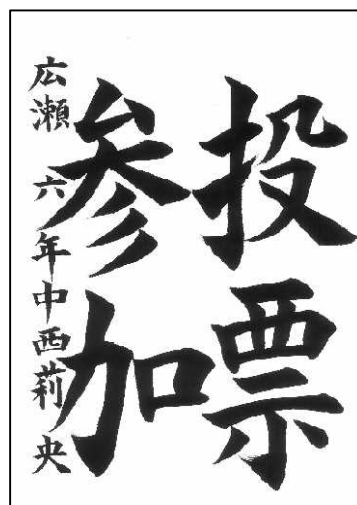 投票
参加
広瀬 六年中西莉央